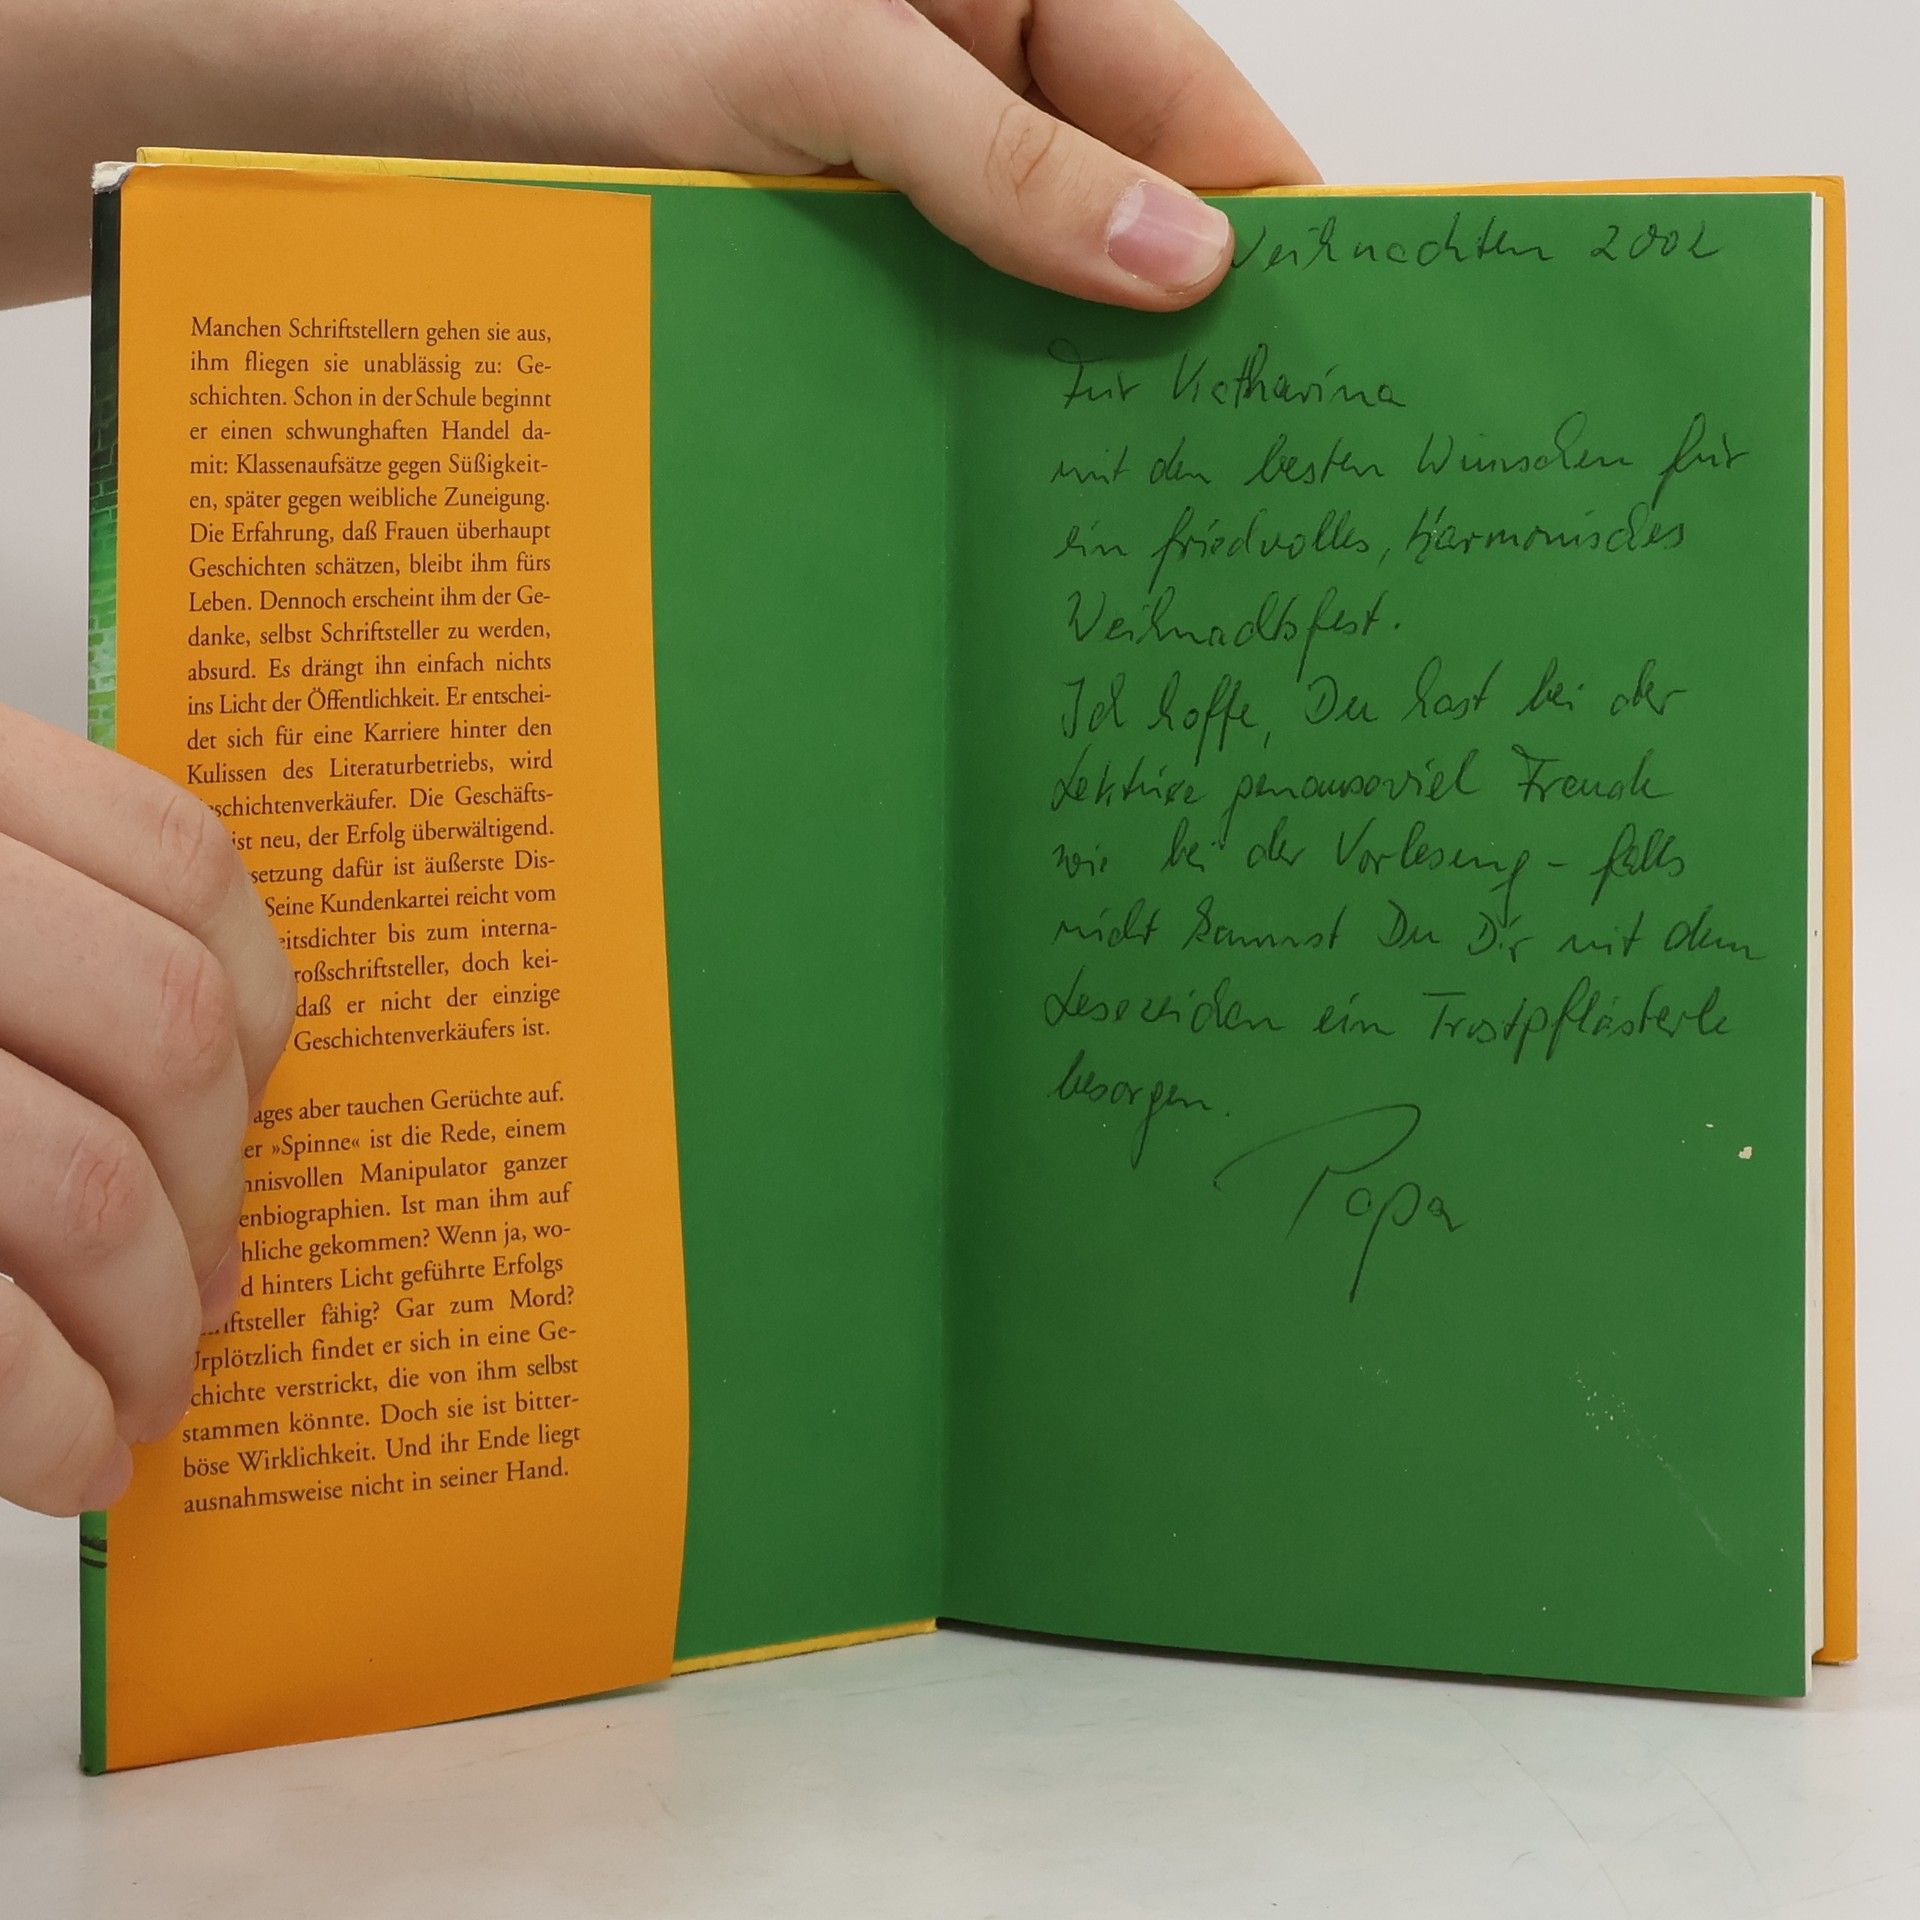 Manchen Schriftstellern gehen sie aus,
ihm fliegen sie unablässig zu: Ge-
schichten. Schon in der Schule beginnt
er einen schwunghaften Handel da-
mit: Klassenaufsätze gegen Süßigkeit-
en, später gegen weibliche Zuneigung.
Die Erfahrung, daß Frauen überhaupt
Geschichten schätzen, bleibt ihm fürs
Leben. Dennoch erscheint ihm der Ge-
danke, selbst Schriftsteller zu werden,
absurd. Es drängt ihn einfach nichts
ins Licht der Öffentlichkeit. Er entschei-
det sich für eine Karriere hinter den
Kulissen des Literaturbetriebs, wird
schichtenverkäufer. Die Geschäfts-
ist neu, der Erfolg überwältigend.
setzung dafür ist äußerste Dis-
Seine Kundenkartei reicht vom
eitsdichter bis zum interna-
roßschriftsteller, doch kei-
daß er nicht der einzige
Geschichtenverkäufers ist.
ages aber tauchen Gerüchte auf.
er »Spinne« ist die Rede, einem
nisvollen Manipulator ganzer
enbiographien. Ist man ihm auf
hliche gekommen? Wenn ja, wo-
d hinters Licht geführte Erfolgs
iftsteller fähig? Gar zum Mord?
Urplötzlich findet er sich in eine Ge-
chichte verstrickt, die von ihm selbst
stammen könnte. Doch sie ist bitter-
böse Wirklichkeit. Und ihr Ende liegt
ausnahmsweise nicht in seiner Hand.
Weihnachten 2002
Für Katharina
mit den besten Wünschen für
ein friedvolles, harmonisches
Weihnachtsfest.
Ich hoffe, Du hast bei der
Lektüre genausoviel Freude
wie bei der Vorlesung – falls
nicht kannst Du Dir mit dem
Lesezeichen ein Trostpflästerle
besorgen.
Papa